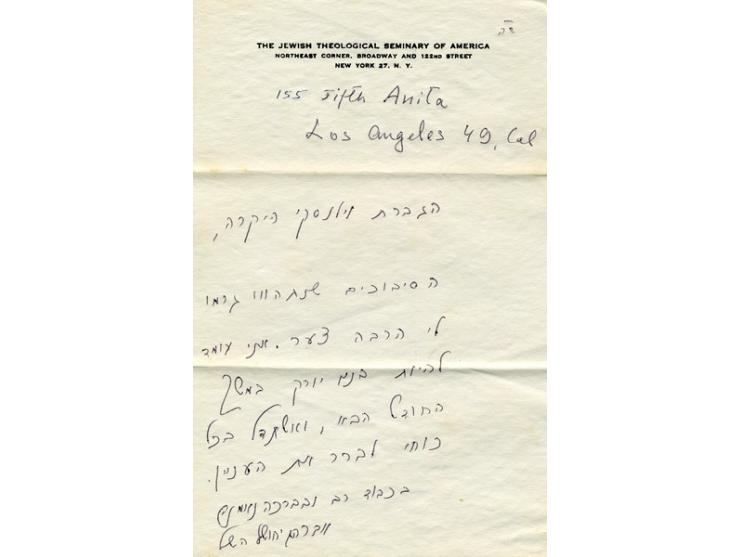 ב״ה
THE JEWISH THEOLOGICAL SEMINARY OF AMERICA
NORTHEAST CORNER, BROADWAY AND 122ND STREET
NEW YORK 27, N. Y.
155 Fifth Anita
Los Angeles 49, Cal
הגברת וילנסקי היקרה,
הסיבוכים שנתהוו גרמו
לי הרבה צער. אני עומד
להיות בניו יורק במשך
החודש הבא, ואשתדל בכל
כוחי לברר את הענין.
בכבוד רב ובברכה נאמנה
אברהם יהושע השל